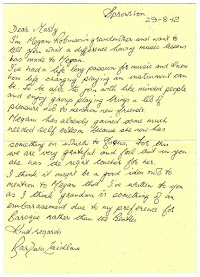 Sprowston
29-8-12
Dear Marty
I'm Megan Robinson's grandmother and want to
tell you what a difference having music lessons
has made to Megan.
I've had a life long passion for music and know
how life changing playing an instrument can
be. To be able to join with like minded people
and enjoy group playing brings a lot of
pleasure not to mention new friends.
Megan has already gained some much
needed self esteem because she now has
something in which to focus. For this
we are very grateful and feel that in you
she has the right teacher for her.
I think it might be a good idea not to
mention to Megan that I've written to you
as I think grandma is something of an
embarrassment due to my preference for
Baroque rather than the Beatles.
Kind regards
Barbara